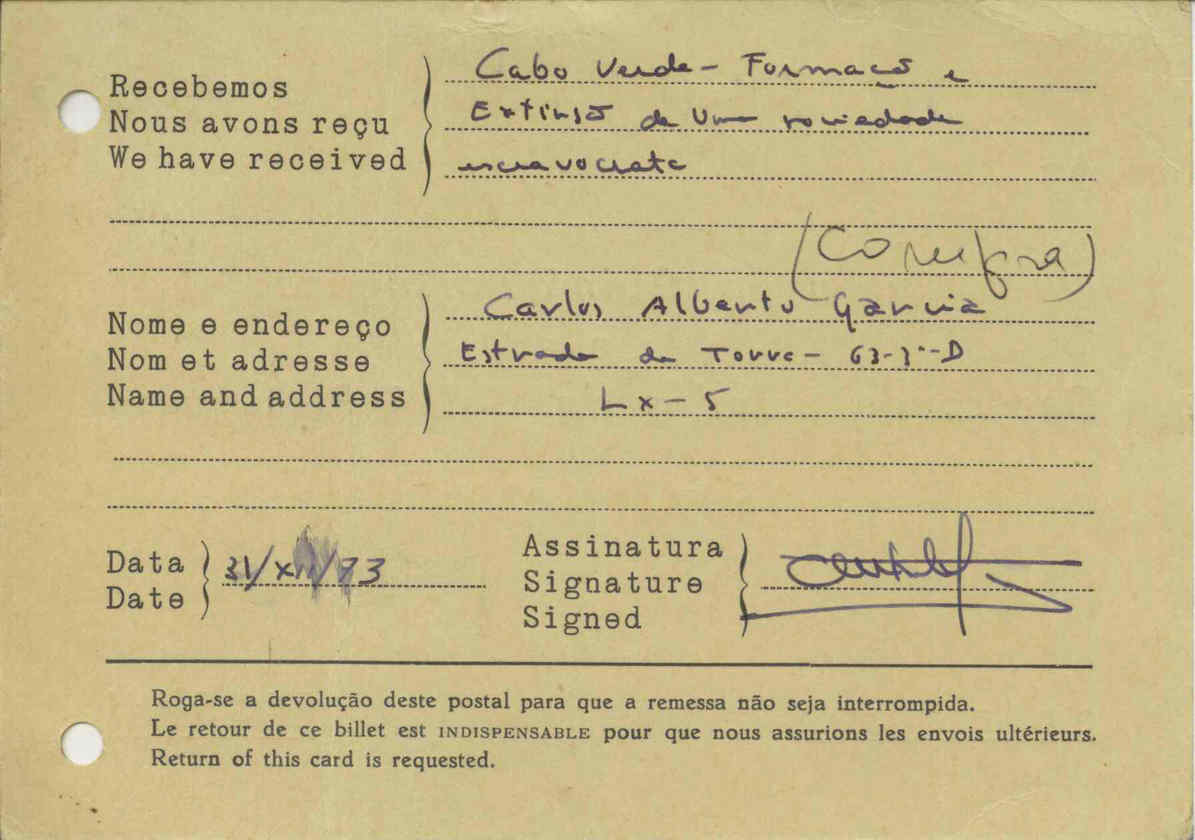 Recebemos
Nous avons reçu
We have received
Cabo Verde - Formaçõ e
Extinsõ de uma sociedade
escravocrata
(Compra)
Nome e endereço
Nom et adresse
Name and address
Carlos Alberto Garcia
Estrada da Torre - 63-3º-D
Lx - 5
Data
Date
31/X /73
Assinatura
Signature
Signed
Roga-se a devolução deste postal para que a remessa não seja interrompida.
Le retour de ce billet est INDISPENSABLE pour que nous assurions les envois ultérieurs.
Return of this card is requested.